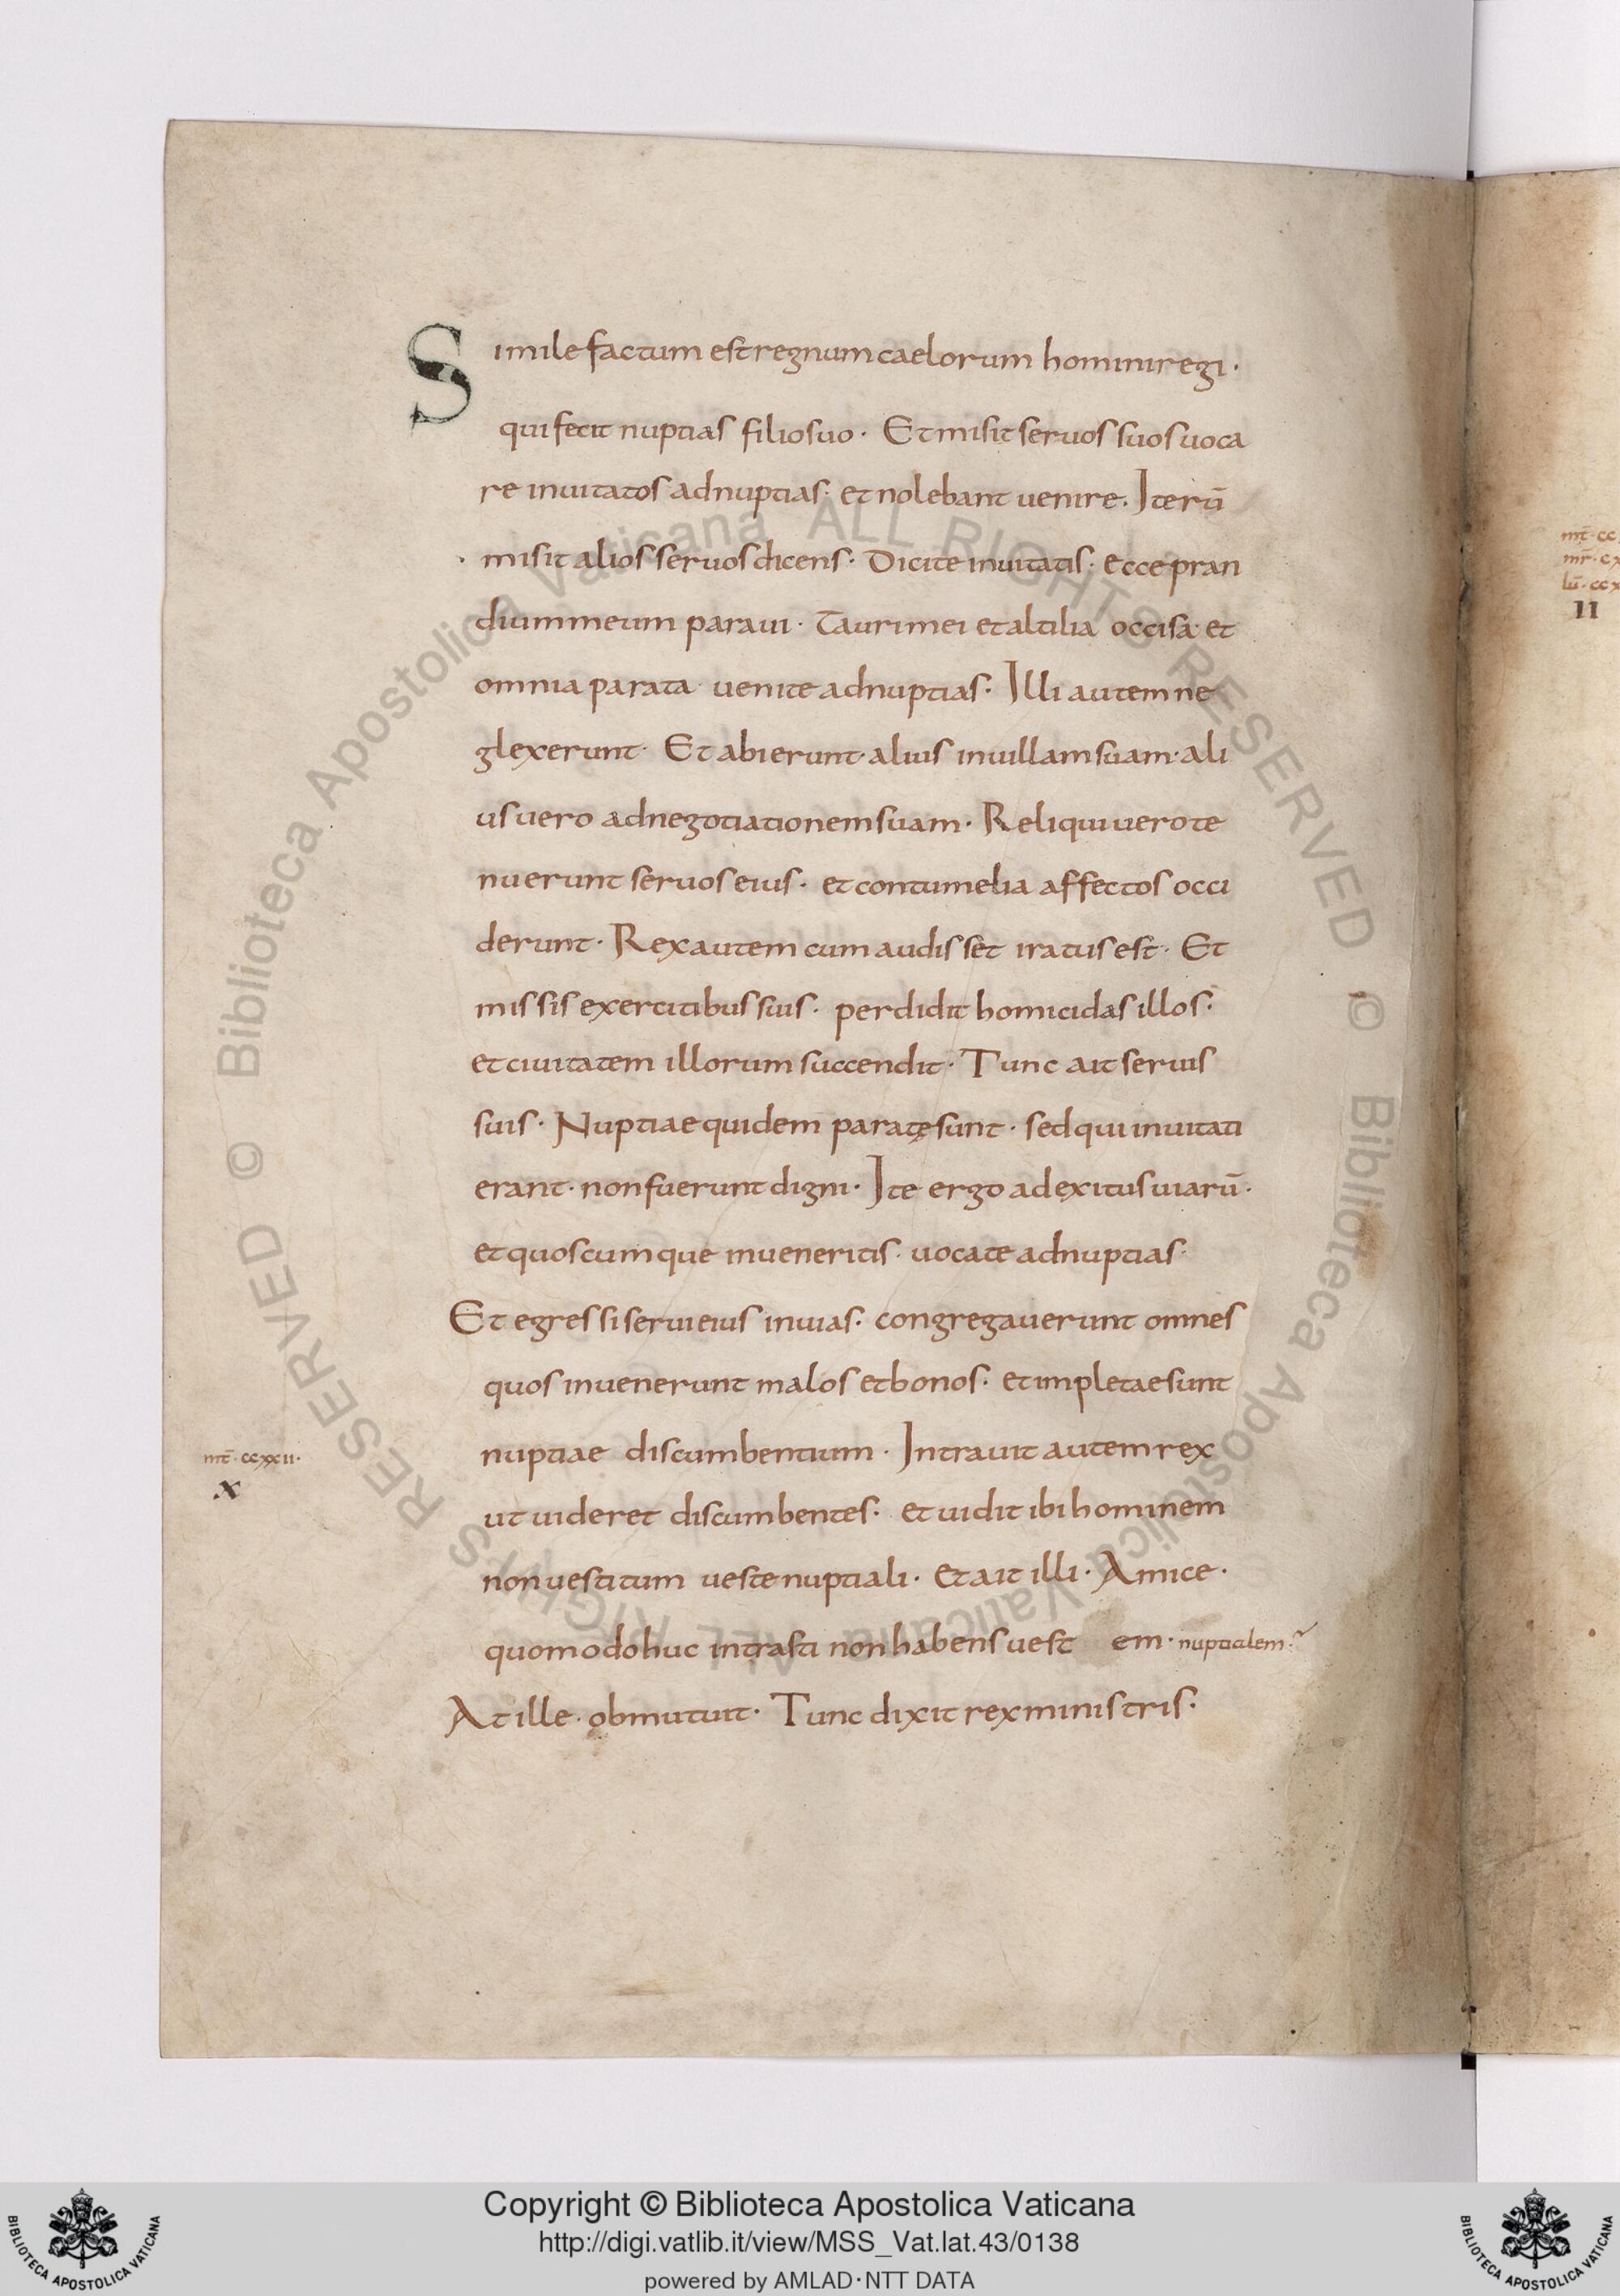 Simile factum est regnum caelorum homini regi·
qui fecit nuptias filio suo· Et misit seruos suos uoca
re inuitatos ad nuptias· et nolebant uenire. Iterū
· misit alios seruos dicens· Dicite inuitatis· ecce pran
dium meum paraui· Tauri mei et altilia occisa· et
omnia parata· uenite ad nuptias· Illi autem ne
glexerunt· Et abierunt· alius in uillam suam· ali
us uero ad negotiationem suam· Reliqui uero te
nuerunt seruos eius· et contumelia affectos occi
derunt· Rex autem cum audisset iratus est· Et
missis exercitibus suis· perdidit homicidas illos·
et ciuitatem illorum succendit· Tunc ait seruis
suis· Nuptiae quidem paratę sunt· sed qui inuitati
erant· non fuerunt digni· Ite ergo ad exitus uiarū·
et quoscumque inueneritis· uocate ad nuptias·
Et egressi serui eius in uias· congregauerunt omnes
quos inuenerunt malos et bonos· et impletae sunt
nuptiae discumbentium· Intrauit autem rex
mt̄· ccxxii·
x
ut uideret discumbentes· et uidit ibi hominem
non uestitum ueste nuptiali· Et ait illi· Amice·
quomodo huc intrasti non habens uestem· nuptialem·
At ille· obmutuit· Tunc dixit rex ministris·
mt̄· cc
mr̄· cx
lū· ccx
II
© Biblioteca Apostolica Vaticana ALL RIGHTS RESERVED
© Biblioteca Apostolica Vaticana ALL RIGHTS RESERVED
BIBLIOTECA APOSTOLICA VATICANA
Copyright © Biblioteca Apostolica Vaticana
http://digi.vatlib.it/view/MSS_Vat.lat.43/0138
powered by AMLAD·NTT DATA
BIBLIOTECA APOSTOLICA VATICANA